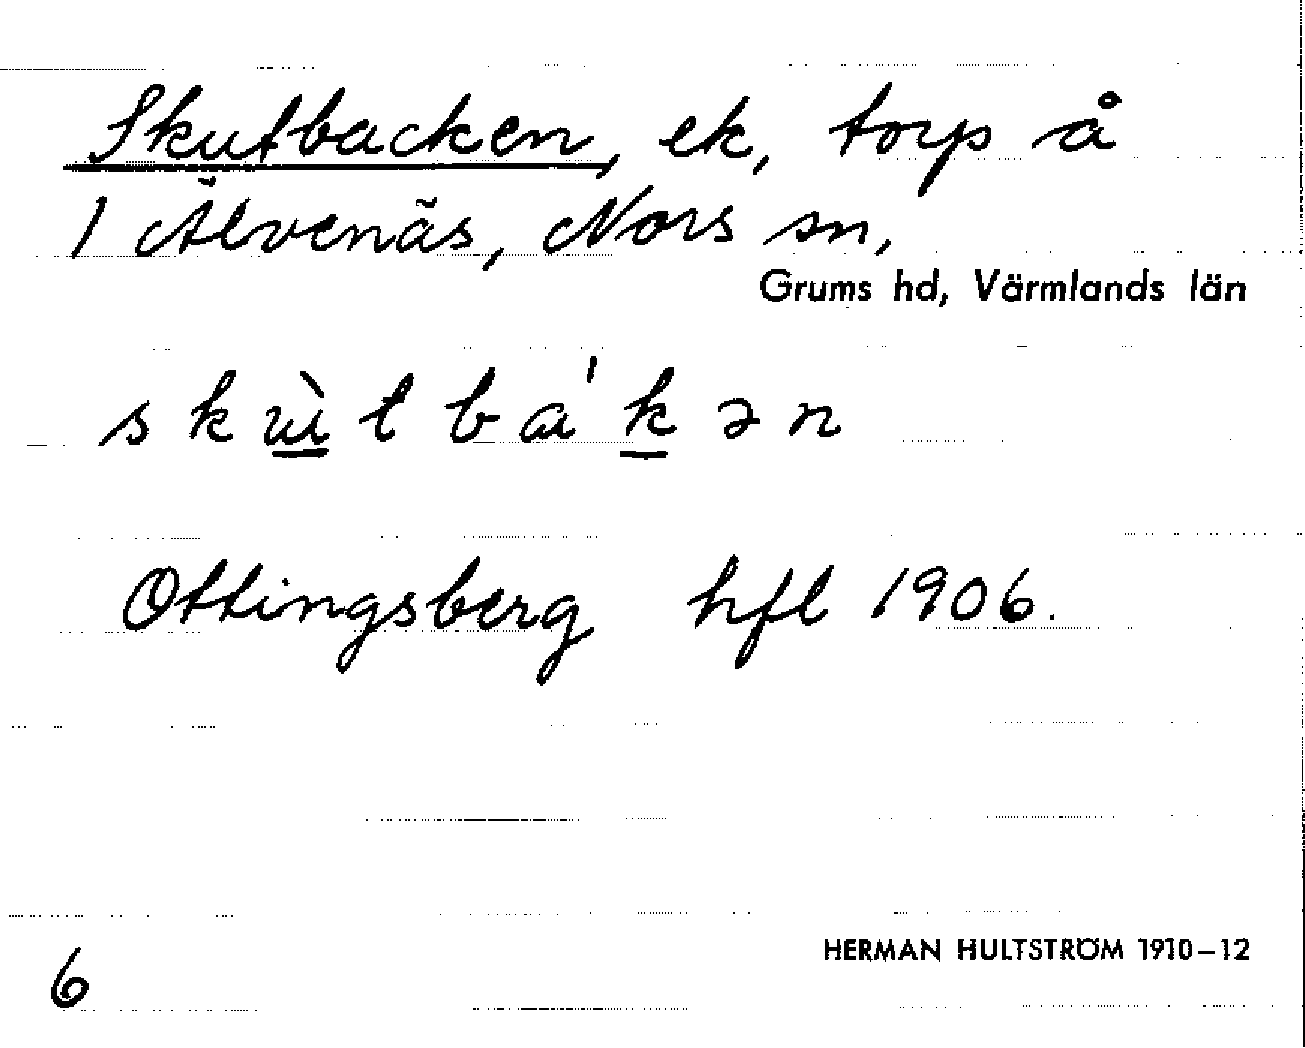 Skutbacken, ek, torp å
1 Älvenäs, Nors sn,
Grums hd, Värmlands län
skùtba'kən
Ottingsberg hfl 1906.
HERMAN HULTSTRÖM 1910–12
6